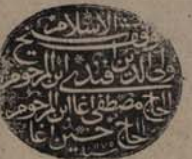 شيخ الاسلام
ولي الدين افندي ابن المرحوم
الحاج مصطفى اغا ابن المرحوم
الحاج حسين اغا